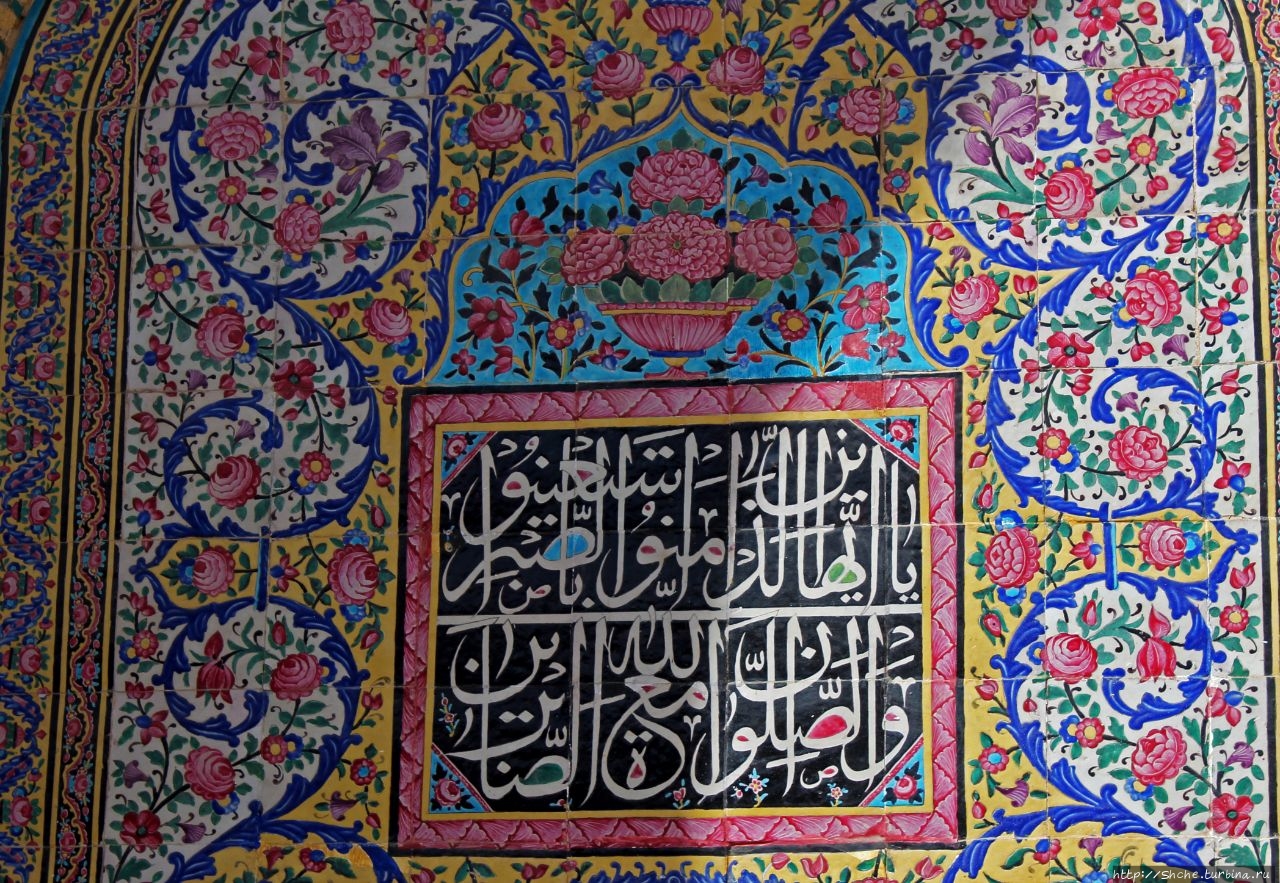 يا ايها الذين امنوا استعينوا بالصبر
والصلوة ان الله مع الصابرين
http://Shche.turbina.ru